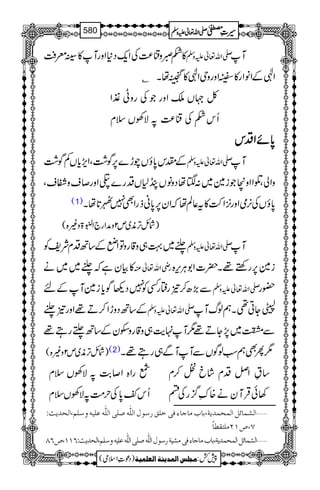 سیرتِ مصطفی صلی اللہ تعالی علیہ وسلم
580
آپ صلی اللہ تعالی علیہ وسلم کا شکم صبر و قناعت کی ایک دنیا اور آپ کا سینہ معرفت
الٰہی کے انوار کا سفینہ اور وحی الٰہی کا گنجینہ تھا۔
کل جہاں ملک اور جو کی روٹی غذا
اُس شکم کی قناعت پہ لاکھوں سلام
پائے اقدس
آپ صلی اللہ تعالی علیہ وسلم کے مقدس پاؤں چوڑے پُر گوشت، ایڑیاں کم گوشت
والی، تلوا اونچا جو زمین میں نہ لگتا تھا دونوں پنڈلیاں قدرے پتلی اور صاف و شفاف،
پاؤں کی نرمی اور نزاکت کا یہ عالم تھا کہ ان پر پانی ذرا بھی نہیں ٹھہرتا تھا۔(1)
(شمائل ترمذی ص۲ و مدارج النبوۃ وغیرہ)
آپ صلی اللہ تعالی علیہ وسلم چلنے میں بہت ہی وقار و تواضع کے ساتھ قدم شریف کو
زمین پر رکھتے تھے۔ حضرت ابو ہریرہ رضی اللہ تعالی عنہ کا بیان ہے کہ چلنے میں میں نے
حضور صلی اللہ تعالی علیہ وسلم سے بڑھ کر تیز رفتار کسی کو نہیں دیکھا گویا زمین آپ کے لئے
لپیٹی جاتی تھی۔ ہم لوگ آپ صلی اللہ تعالی علیہ وسلم کے ساتھ دوڑا کرتے تھے اور تیز چلنے
سے مشقت میں پڑ جاتے تھے مگر آپ نہایت ہی وقار و سکون کے ساتھ چلتے رہتے تھے
مگر پھر بھی ہم سب لوگوں سے آپ آگے ہی رہتے تھے۔(2) (شمائل ترمذی ص۲ وغیرہ)
ساقِ اصل قدم شاخِ نخلِ کرم
شمعِ راہِ اصابت پہ لاکھوں سلام
کھائی قرآں نے خاکِ گزر کی قسم
اُس کف پا کی حرمت پہ لاکھوں سلام
۱.....الشمائل المحمدیة، باب ماجاء فی خلق رسول اللہ صلی اللہ علیہ وسلم، الحدیث:
۷، ص۲۱ ملتقطاً
۲.....الشمائل المحمدیة، باب ماجاء فی مشیة رسول اللہ صلی اللہ علیہ وسلم، الحدیث:۱۱۶، ص۸۶
پیش کش: مجلس المدینة العلمیة (دعوتِ اسلامی)